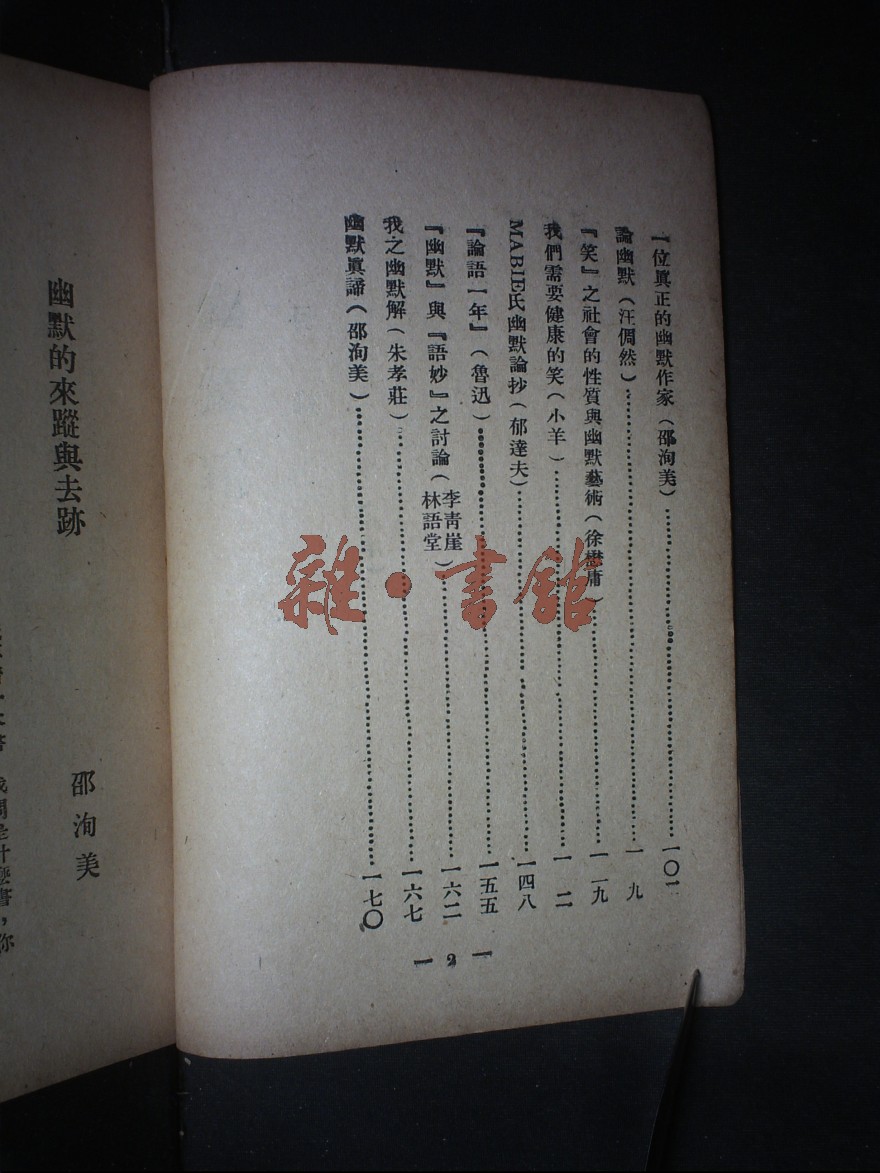 一位眞正的幽默作家（邵洵美）……一〇一
論幽默（汪倜然）……一 九
『笑』之社會的性質與幽默藝術（徐懋庸）……一二九
我們需要健康的笑（小羊）……一 二
MABIE氏幽默論抄（郁達夫）……一四八
『論語一年』（魯迅）……一五五
『幽默』與『語妙』之討論（李靑崖 林語堂）……一六二
我之幽默解（朱孝莊）……一六七
幽默眞諦（邵洵美）……一七〇
— 2 —
雜·書館
幽默的來蹤與去跡
邵洵美
問是什麼書，你